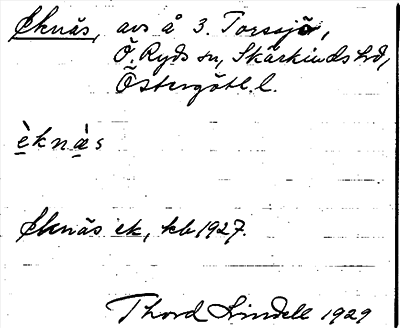 Eknäs, avs å 3. Torssjö,
Ö. Ryds sn, Skärkinds hd,
Östergötl. l.
èknàs
Eknäs ek, kb 1927.
Thord Lindell 1929